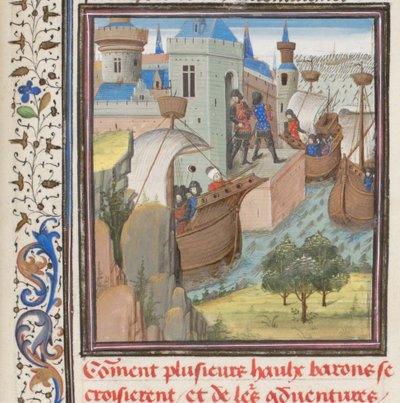 Comment plusieurs haulx barons se
croisierent / et de les adventures /